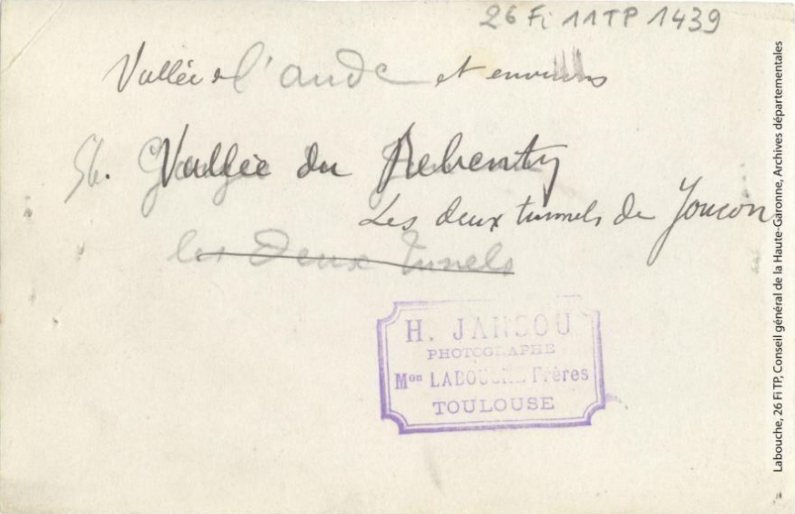 26 Fi 11TP 1439
Vallée de l'aude et environs
56. Vallée du Rebenty
Les deux tunnels de Joucou
les Deux tunels
H. JANSOU
PHOTOGRAPHE
Mon LABOUCHE Frères
TOULOUSE
Labouche, 26 Fi TP, Conseil général de la Haute-Garonne, Archives départementales